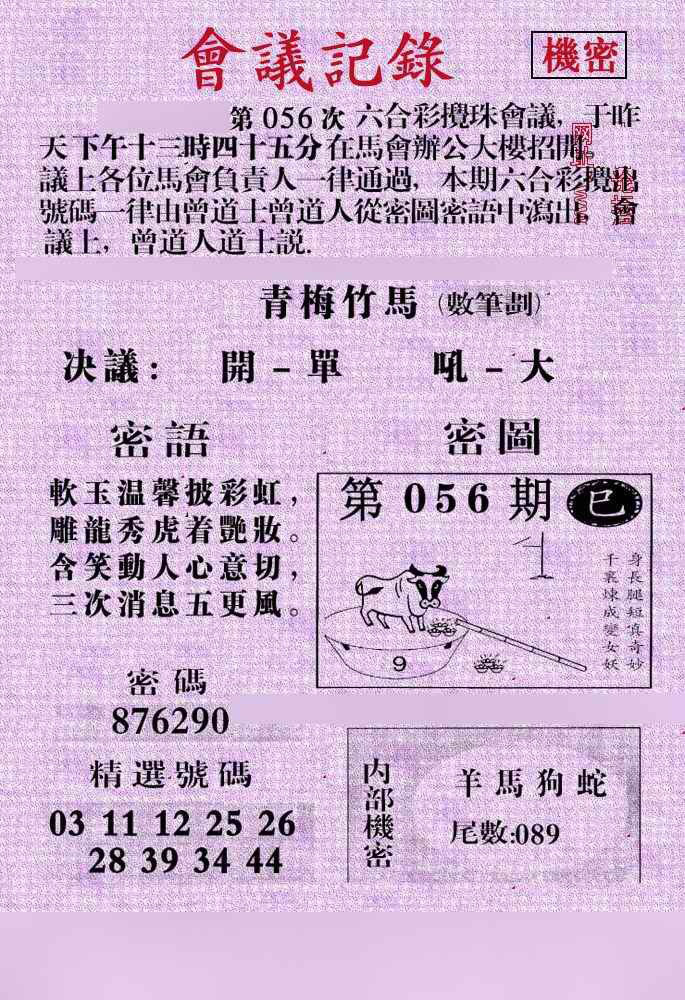 會議記錄
機密
第056次六合彩攪珠會議，于昨
天下午十三時四十五分在馬會辦公大樓招開
議上各位馬會負責人一律通過，本期六合彩攪出
號碼一律由曾道士曾道人從密圖密語中瀉出，會
議上，曾道人道士説.
青梅竹馬（數筆劃）
决議： 開－單 吼－大
密語
軟玉温馨披彩虹，
雕龍秀虎着艷妝。
含笑動人心意切，
三次消息五更風。
密圖
第056期 巳
身長腿短真奇妙
千裏煉成變女妖
9
密碼
876290
精選號碼
03 11 12 25 26
28 39 34 44
内部機密
羊馬狗蛇
尾數:089